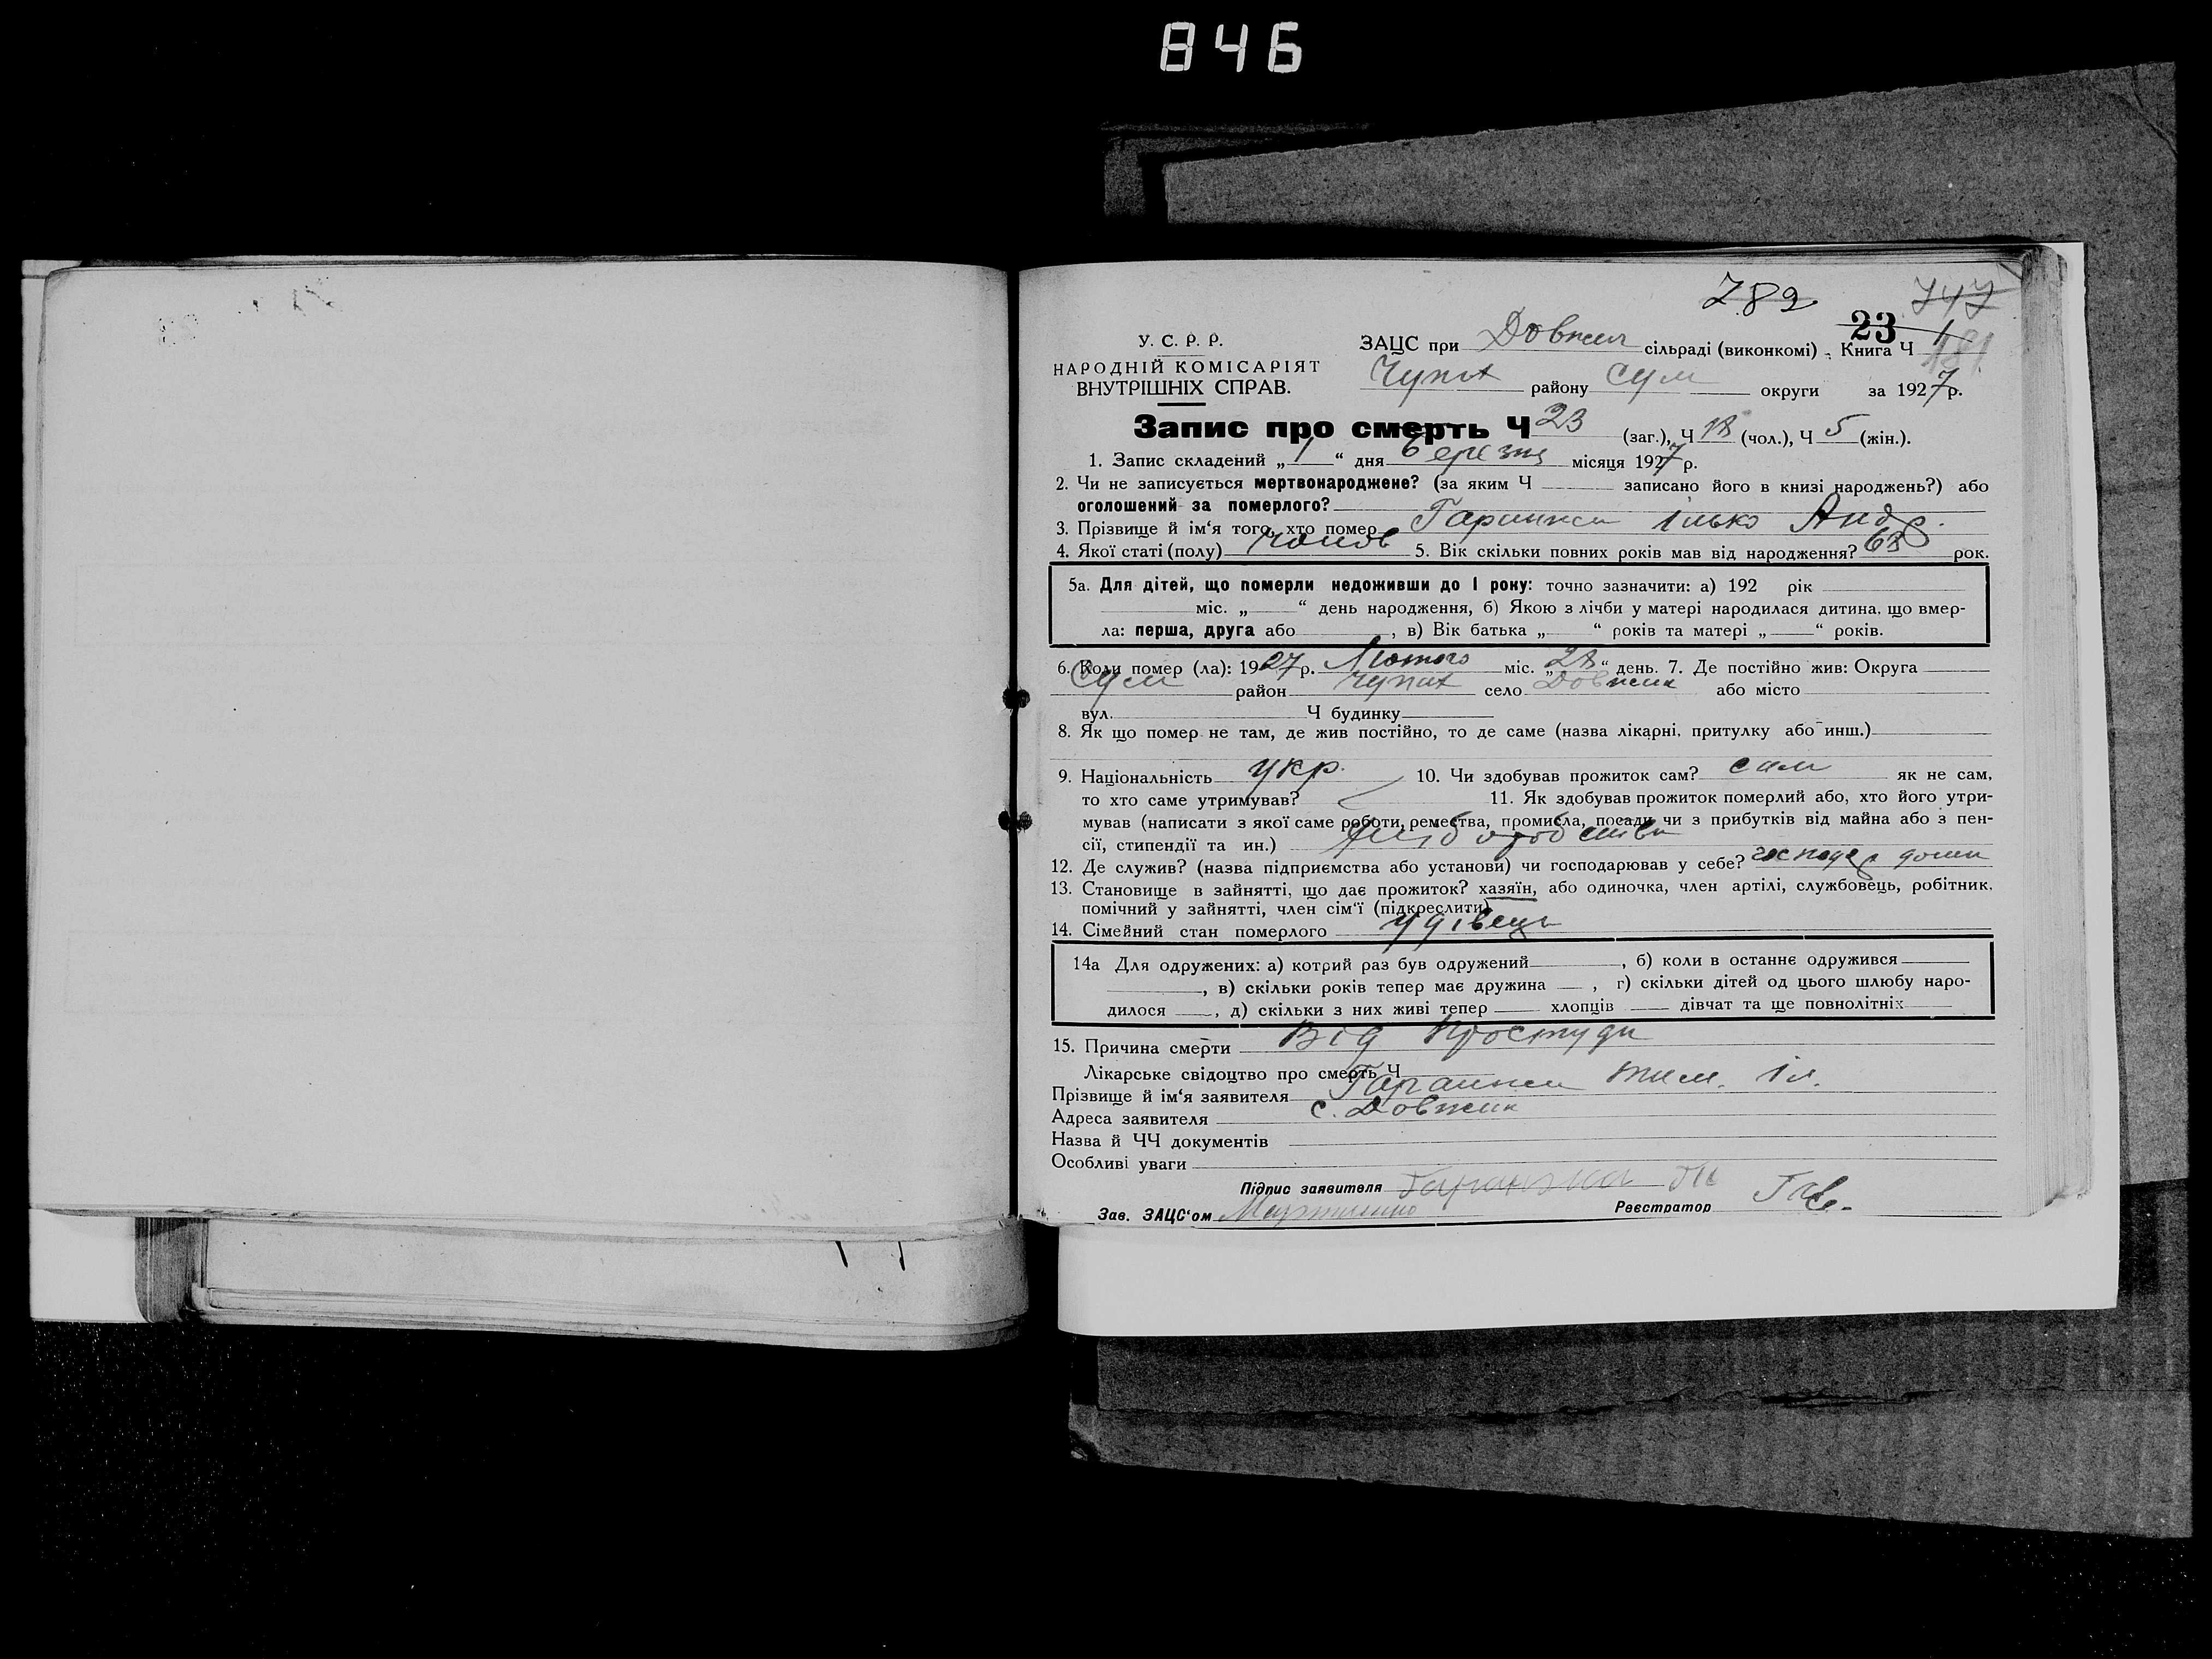 846
789 747
23
У. С. Р. Р.
НАРОДНІЙ КОМІСАРІЯТ
ВНУТРІШНІХ СПРАВ.
ЗАЦС при Довжик сільраді (виконкомі) Книга Ч 1
181
Чупах району Сум округи за 1927 р.
Запис про смерть Ч 23 (заг.), Ч 18 (чол.), Ч 5 (жін.).
1. Запис складений „ 1 “ дня березня місяця 1927 р.
2. Чи не записується мертвонароджене? (за яким Ч записано його в книзі народжень?) або
оголошений за померлого?
3. Прізвище й ім‘я того, хто помер Гаранжа Ілько Андр.
4. Якої статі (полу) чолов 5. Вік скільки повних років мав від народження? 68 рок.
5а. Для дітей, що померли недоживши до 1 року: точно зазначити: а) 192 рік
міс. „ “ день народження, б) Якою з лічби у матері народилася дитина, що вмер-
ла: перша, друга або , в) Вік батька „ “ років та матері „ “ років.
6. Коли помер (ла): 1927 р. Лютого міс. „ 28 “ день. 7. Де постійно жив: Округа
Сум район Чупах село Довжик або місто
вул. Ч будинку
8. Як що помер не там, де жив постійно, то де саме (назва лікарні, притулку або инш.)
9. Національність укр. 10. Чи здобував прожиток сам? сам як не сам,
то хто саме утримував? 11. Як здобував прожиток померлий або, хто його утри-
мував (написати з якої саме роботи, ремества, промисла, посади чи з прибутків від майна або з пен-
сії, стипендії та ин.) хліборобства
12. Де служив? (назва підприємства або установи) чи господарював у себе? господар дома
13. Становище в зайнятті, що дає прожиток? хазяїн, або одиночка, член артілі, службовець, робітник,
помічний у зайнятті, член сім‘ї (підкреслити)
14. Сімейний стан померлого удівець
14а Для одружених: а) котрий раз був одружений , б) коли в останнє одружився
, в) скільки років тепер має дружина , г) скільки дітей од цього шлюбу наро-
дилося , д) скільки з них живі тепер хлопців дівчат та ще повнолітніх
15. Причина смерти Від простуди
Лікарське свідоцтво про смерть Ч
Прізвище й ім‘я заявителя Гаранжа Тим. Іл.
Адреса заявителя с. Довжик
Назва й ЧЧ документів
Особливі уваги
Підпис заявителя Гаранжа
Зав. ЗАЦС‘ом Реєстратор